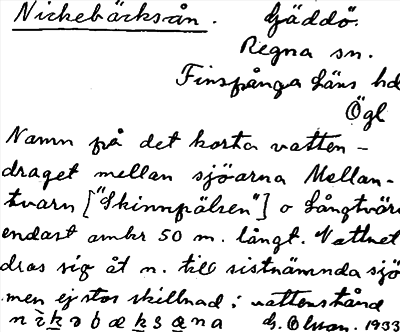 Nickebäcksån. Gäddö.
Regna sn.
Finspånga läns hd
Ögl
Namn på det korta vatten-
draget mellan sjöarna Mellan-
tvärn ["Skinnpälsen"] o Långtvärn
endast omkr 50 m. långt. Vattnet
dras sig åt n. till sistnämnda sjö
men ej stor skillnad i vattenstånd
G. Olson. 1933